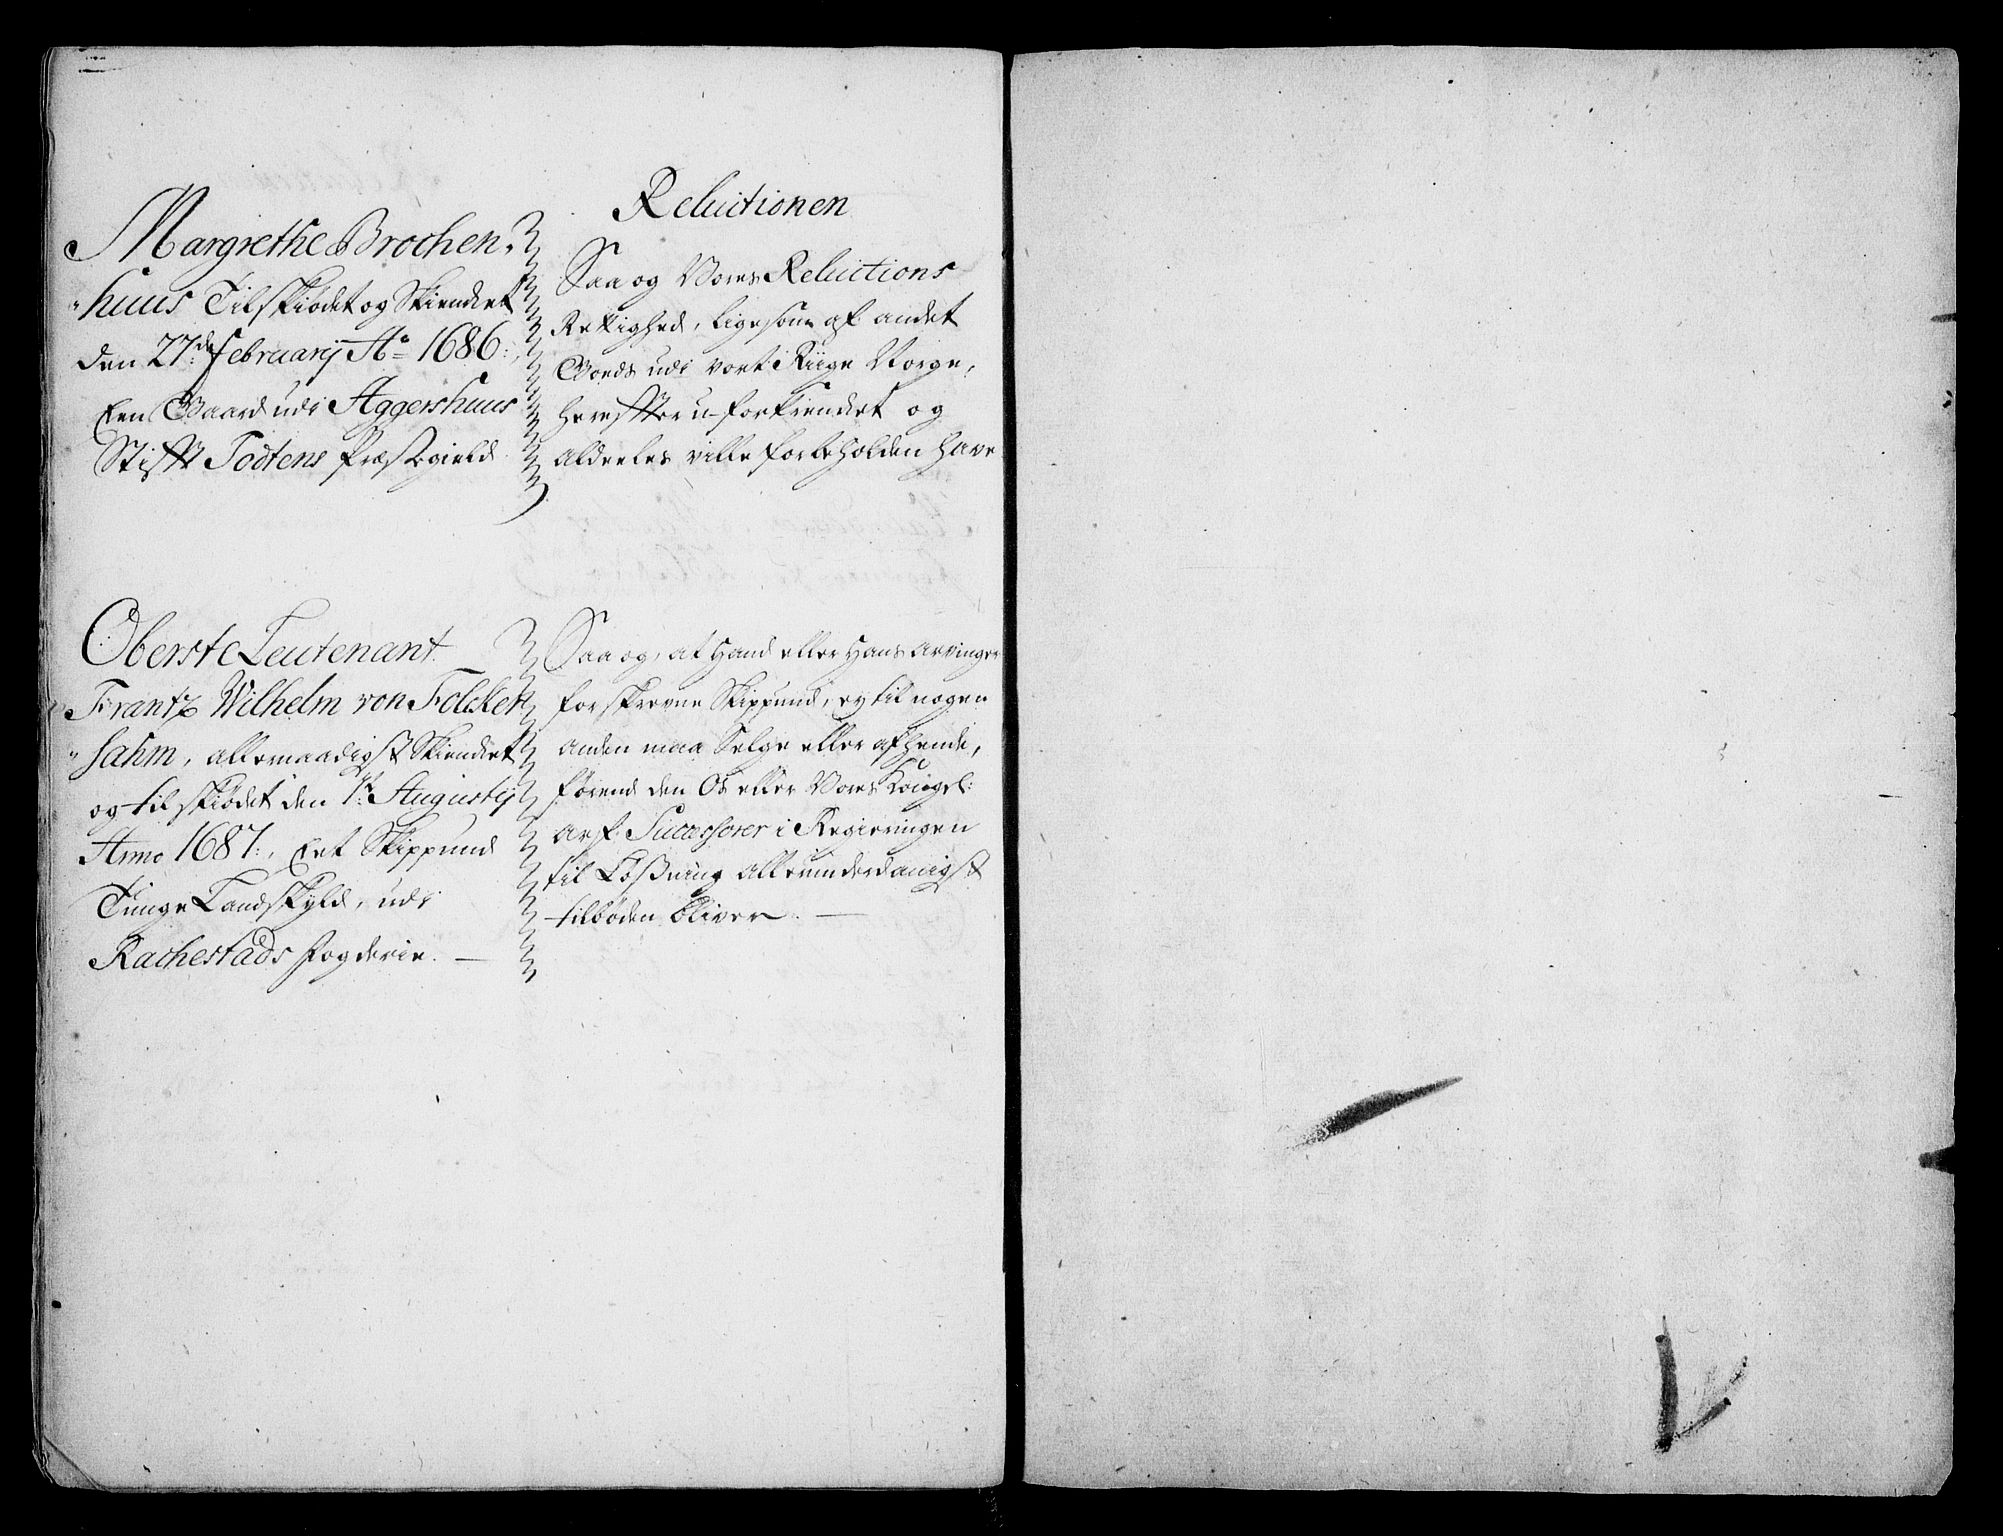 Reluitionen
Margrethe Brochen,
"huus Tilskiödet og Skiencket
den 27de February Ao 1686:,
Een Gaard udi Aggershuus
Stifft Todtens Præstegield
Saa og Vores Reluitions
Rettighed, ligesom af andet
Goeds udi vort Riige Norge,
herefter u-forkrencket og
aldeeles ville forbeholden have
Oberste Leutenant
Frantz Wilhelm von Folcker
"sahm, allernaadigst Skiencket
og tilskiödet den 1te Augustij
Anno 1687:, Eet Skippund
Tunge Landskyld, udi
Rachestads fogderie. —
Saa og, at Hand eller Hans Arvinger
forskrevne Skippund, ey til nogen
anden maa Selge eller afhende,
förend den Os eller Vores Kongel:
Arf Successorer i Regieringen
til Lößning allerunderdanigst
tilböden bliver. —